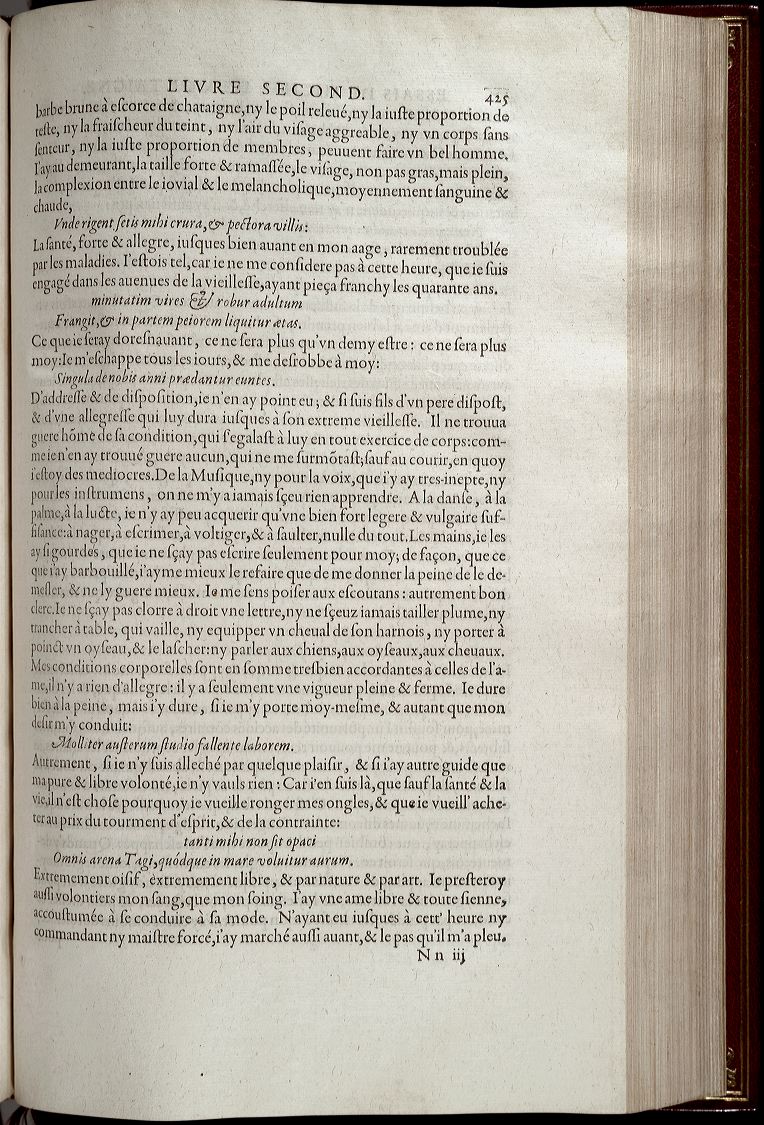 LIVRE SECOND.
425
barbe brune à eſcorce de chataigne,ny le poil releué,ny la iuſte proportion de
teſte, ny la fraiſcheur du teint, ny l'air du viſage aggreable, ny vn corps ſans
ſenteur, ny la iuſte proportion de membres, peuuent faire vn bel homme.
I'ay au demeurant,la taille forte & ramaſſée,le viſage, non pas gras,mais plein,
la complexion entre le iovial & le melancholique,moyennement ſanguine &
chaude,
Vnde rigent ſetis mihi crura,& pectora villis:
La ſanté, forte & allegre, iuſques bien auant en mon aage, rarement troublée
par les maladies. I'eſtois tel,car ie ne me conſidere pas à cette heure, que ie ſuis
engagé dans les auenues de la vieilleſſe,ayant pieça franchy les quarante ans.
minutatim vires & robur adultum
Frangit,& in partem peiorem liquitur ætas.
Ce que ie ſeray doreſnauant, ce ne ſera plus qu'vn demy eſtre : ce ne ſera plus
moy:Ie m'eſchappe tous les iours,& me deſrobbe à moy:
Singula de nobis anni prædantur euntes.
D'addreſſe & de diſpoſition,ie n'en ay point eu; & ſi ſuis fils d'vn pere diſpoſt,
& d'vne allegreſſe qui luy dura iuſques à ſon extreme vieilleſſe. Il ne trouua
guere hõme de ſa condition,qui s'egalaſt à luy en tout exercice de corps:com-
me ie n'en ay trouué guere aucun,qui ne me ſurmõtaſt;ſauf au courir,en quoy
i'eſtoy des mediocres.De la Muſique,ny pour la voix,que i'y ay tres-inepte,ny
pour les inſtrumens, on ne m'y a iamais ſçeu rien apprendre. A la danſe, à la
palme,à la lucte, ie n'y ay peu acquerir qu'vne bien fort legere & vulgaire ſuf-
fiſance:à nager,à eſcrimer,à voltiger,& à ſaulter,nulle du tout.Les mains,ie les
ay ſi gourdes, que ie ne ſçay pas eſcrire ſeulement pour moy; de façon, que ce
que i'ay barbouillé,i'ayme mieux le refaire que de me donner la peine de le de-
meſler, & ne ly guere mieux. Ie me ſens poiſer aux eſcoutans : autrement bon
clerc.Ie ne ſçay pas clorre à droit vne lettre,ny ne ſçeuz iamais tailler plume,ny
trancher à table, qui vaille, ny equipper vn cheual de ſon harnois, ny porter à
poinct vn oyſeau,& le laſcher:ny parler aux chiens,aux oyſeaux,aux cheuaux.
Mes conditions corporelles ſont en ſomme treſbien accordantes à celles de l'a-
me,il n'y a rien d'allegre : il y a ſeulement vne vigueur pleine & ferme. Ie dure
bien à la peine, mais i'y dure, ſi ie m'y porte moy-meſme, & autant que mon
deſir m'y conduit:
Molliter auſterum ſtudio fallente laborem.
Autrement, ſi ie n'y ſuis alleché par quelque plaiſir, & ſi i'ay autre guide que
ma pure & libre volonté,ie n'y vauls rien : Car i'en ſuis là,que ſauf la ſanté & la
vie,il n'eſt choſe pourquoy ie vueille ronger mes ongles,& que ie vueill' ache-
ter au prix du tourment d'eſprit,& de la contrainte:
tanti mihi non ſit opaci
Omnis arena Tagi,quódque in mare voluitur aurum.
Extremement oiſif, extremement libre, & par nature & par art. Ie preſteroy
auſſi volontiers mon ſang,que mon ſoing. I'ay vne ame libre & toute ſienne,
accouſtumée à ſe conduire à ſa mode. N'ayant eu iuſques à cett' heure ny
commandant ny maiſtre forcé,i'ay marché auſſi auant,& le pas qu'il m'a pleu.
Nn iij